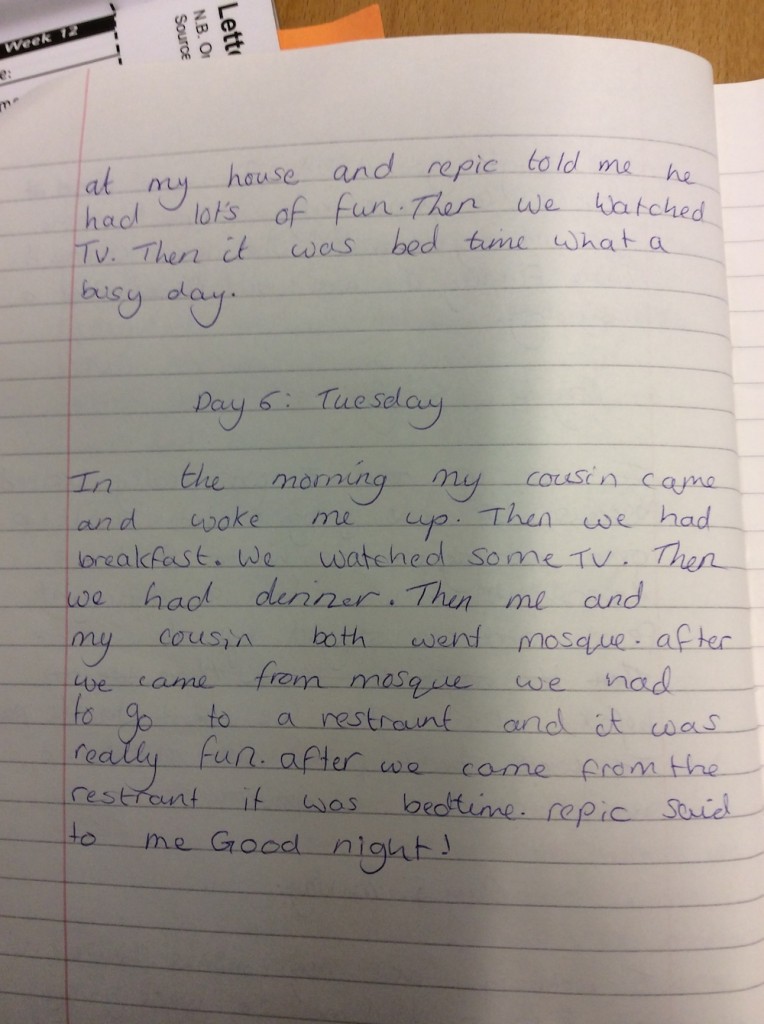 Week 12
e:
Lette
N.B. Or
Source
at my house and repic told me he
had lot's of fun. Then we watched
TV. Then it was bed time what a
busy day.
Day 6: Tuesday
In the morning my cousin came
and woke me up. Then we had
breakfast. We watched some TV. Then
we had deriner. Then me and
my cousin both went mosque. after
we came from mosque we had
to go to a restraunt and it was
really fun. after we came from the
restrant it was bedtime. repic said
to me Good night!